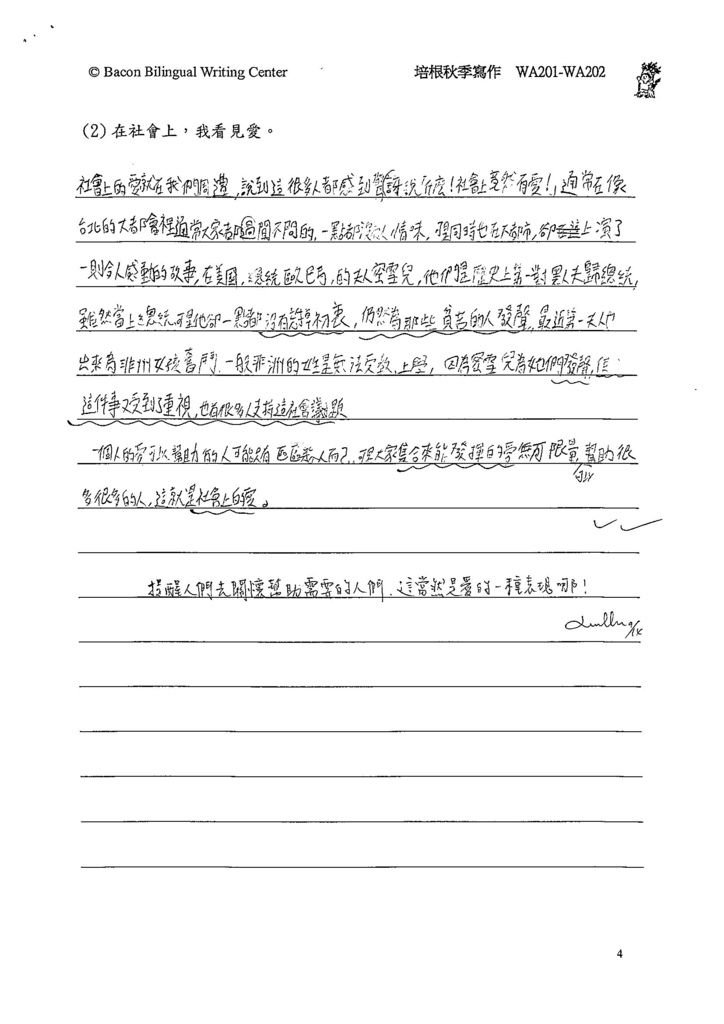 © Bacon Bilingual Writing Center 培根秋季寫作 WA201-WA202
(2)在社會上,我看見愛。
社會上的愛就在我們周遭,說到這很多人都感到驚訝說什麼!社會上竟然有愛!,通常在像
台北的大都會裡通常大家都是不聞不問的,一點都沒人情味,但同時也在大都市,卻上演了
一則令人感動的故事,在美國,總統歐巴馬,的夫人蜜雪兒,他們是歷史上第一對黑人夫婦總統,
雖然當上總統,可是他卻一點都沒有忘掉初衷,仍然為那些貧苦的人發聲,最近第一夫人也
出來為非洲女孩奮鬥,一般非洲的女性是無法受教,上學,因為蜜雪兒為她們發聲,
這件事又受到重視,也有很多人支持這在會議題
一個人的愛可以幫助的人可能只有區區幾人而已,但大家集合來能發揮的愛無可限量,幫助很
多很多的人,這就是社會上的愛。
提醒人們去關懷幫助需要的人們,這當然是愛的一種表現哪!
4